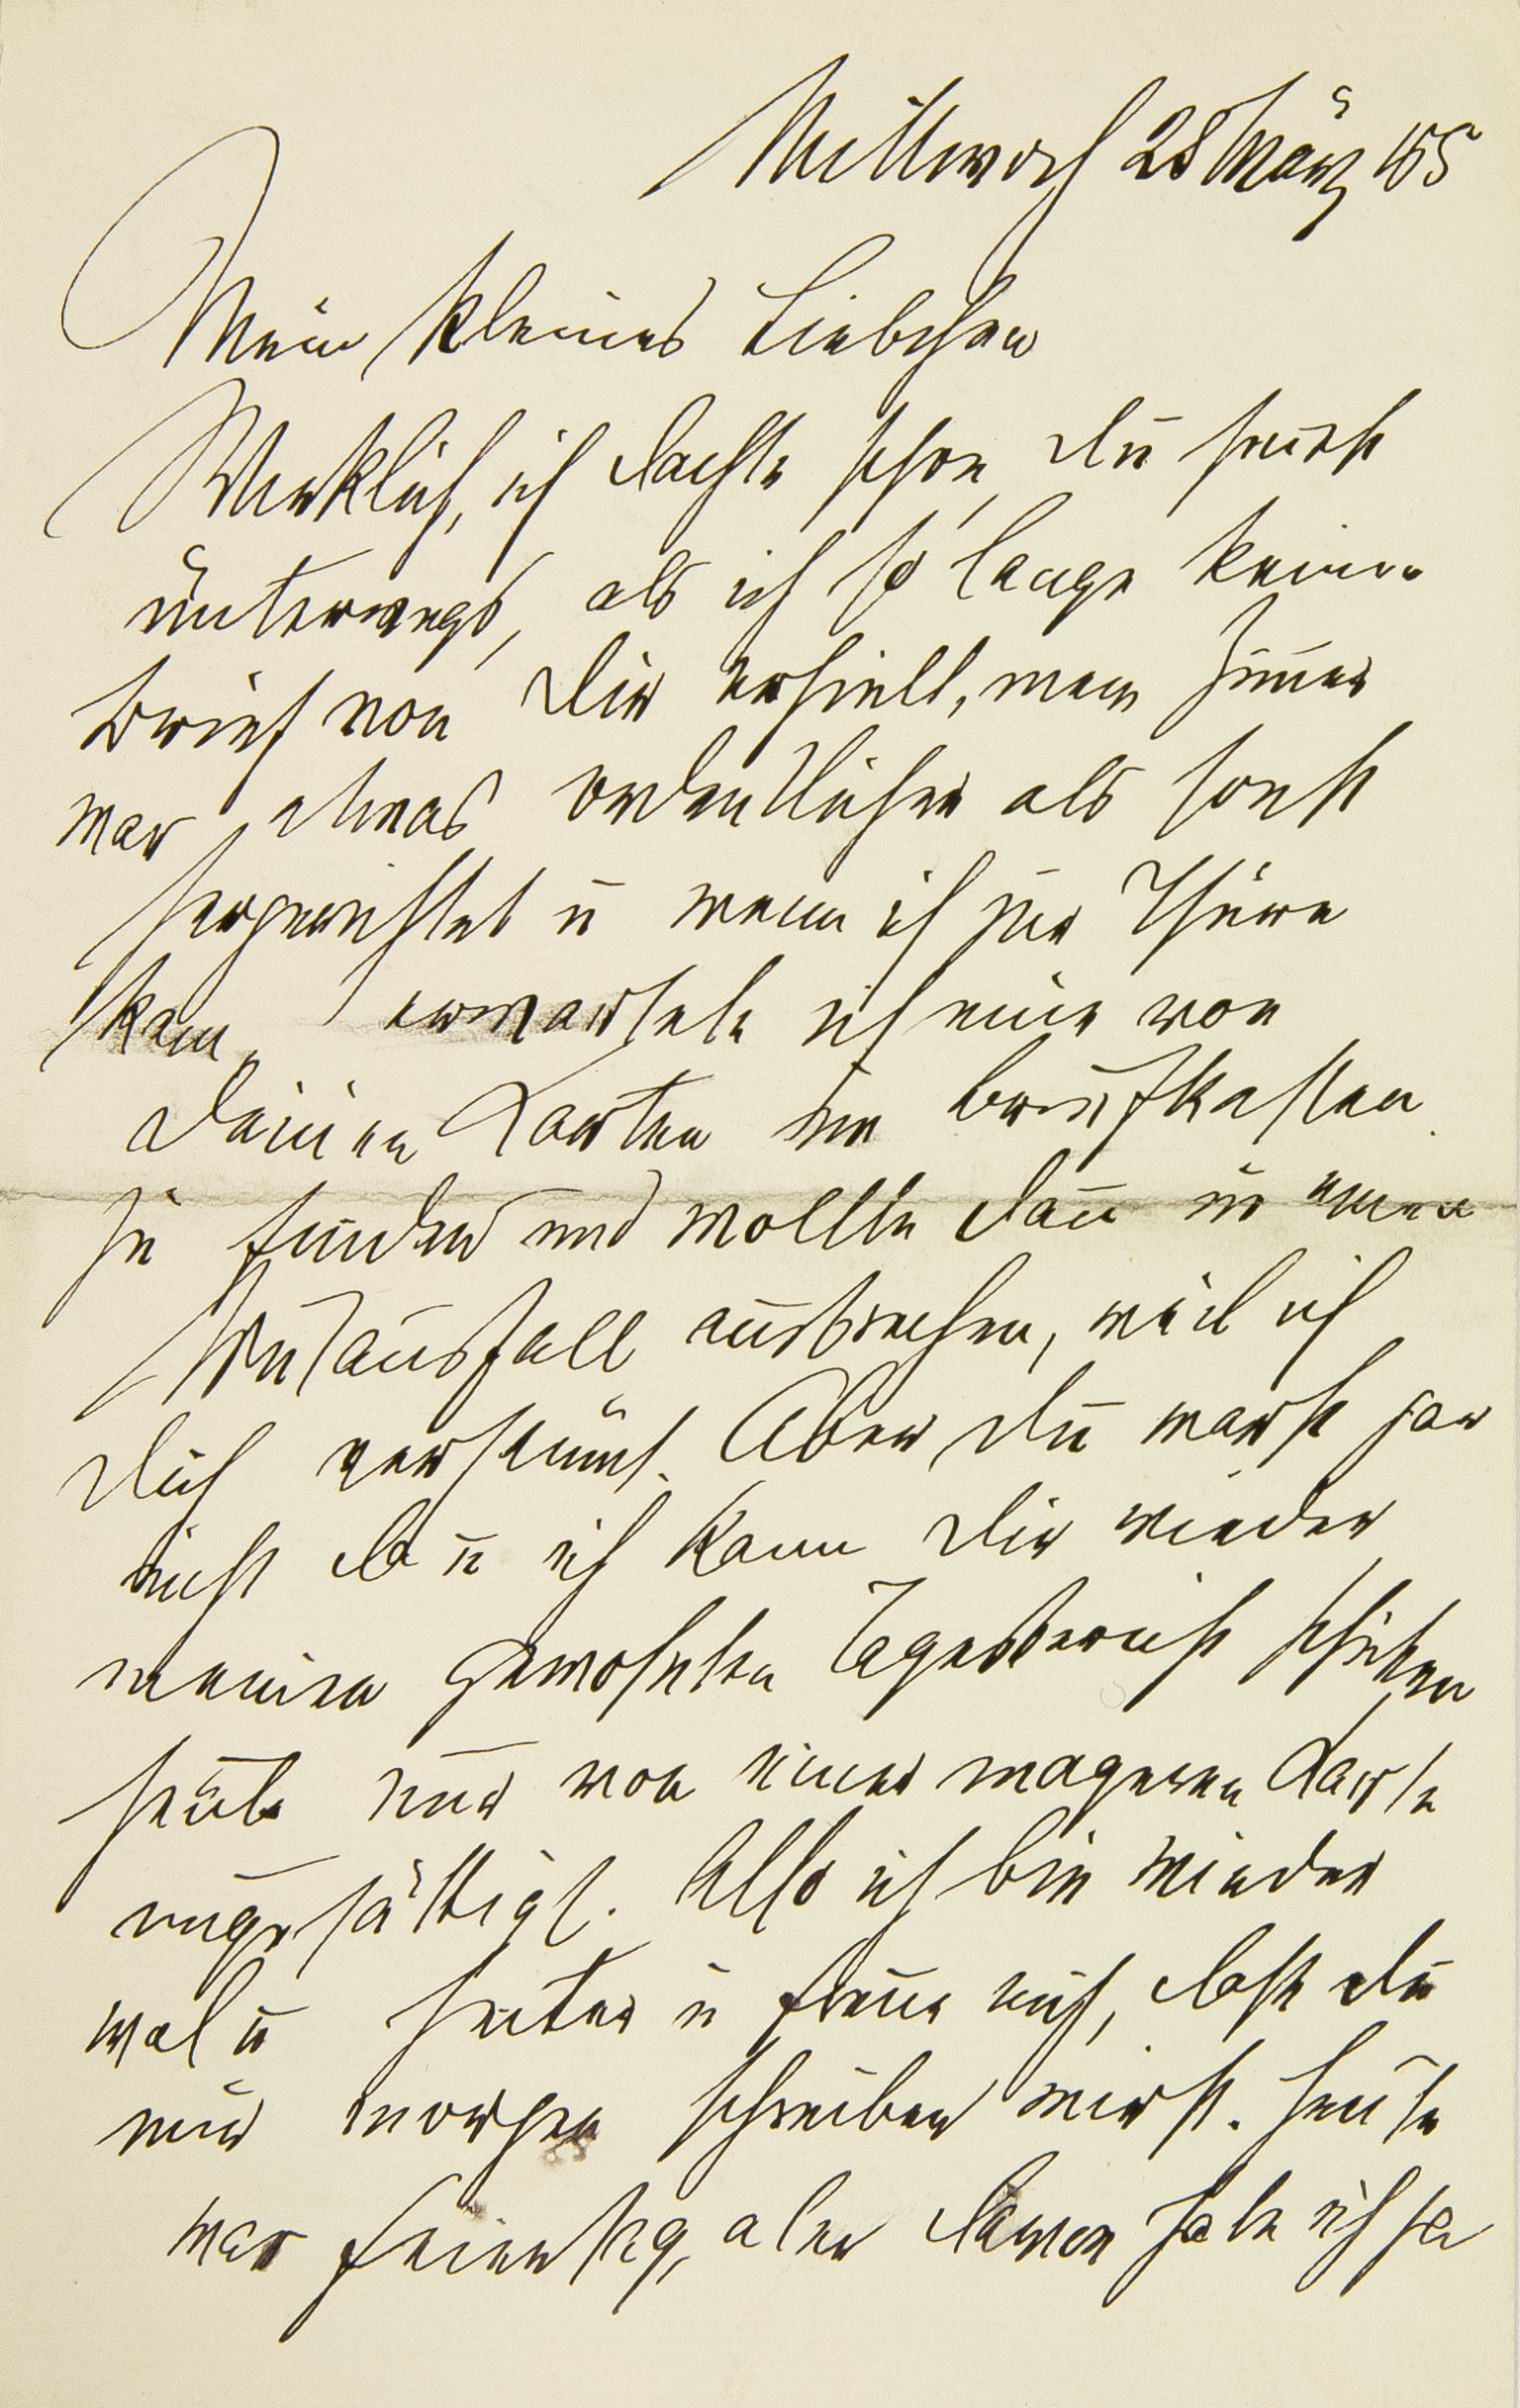 Mittwoch 28 März 155
Mein kleines Liebchen
Wirklich, ich dachte schon, Du seiest
unterwegs, als ich so lange keinen
Brief von Dir erhielt, mein Zimer
war etwas ordentlicher als sonst
hergerichtet u wenn ich zur Thüre
kam, erwartete ich eine von
Deinen Karten im Briefkasten
zu finden und wollte dan in einen
Wutausfall ausbrechen, weil ich
Dich versäumt. Aber Du warst gar
nicht da u ich kann Dir wieder
meinen gewohnten Tagesbericht schicken
heute nur von einer mageren Karte
ungesättigt. Also ich bin wieder
wol u heiter u freue mich, dass Du
mir morgen schreiben wirst. Heute
war Feiertag, aber davon habe ich ja